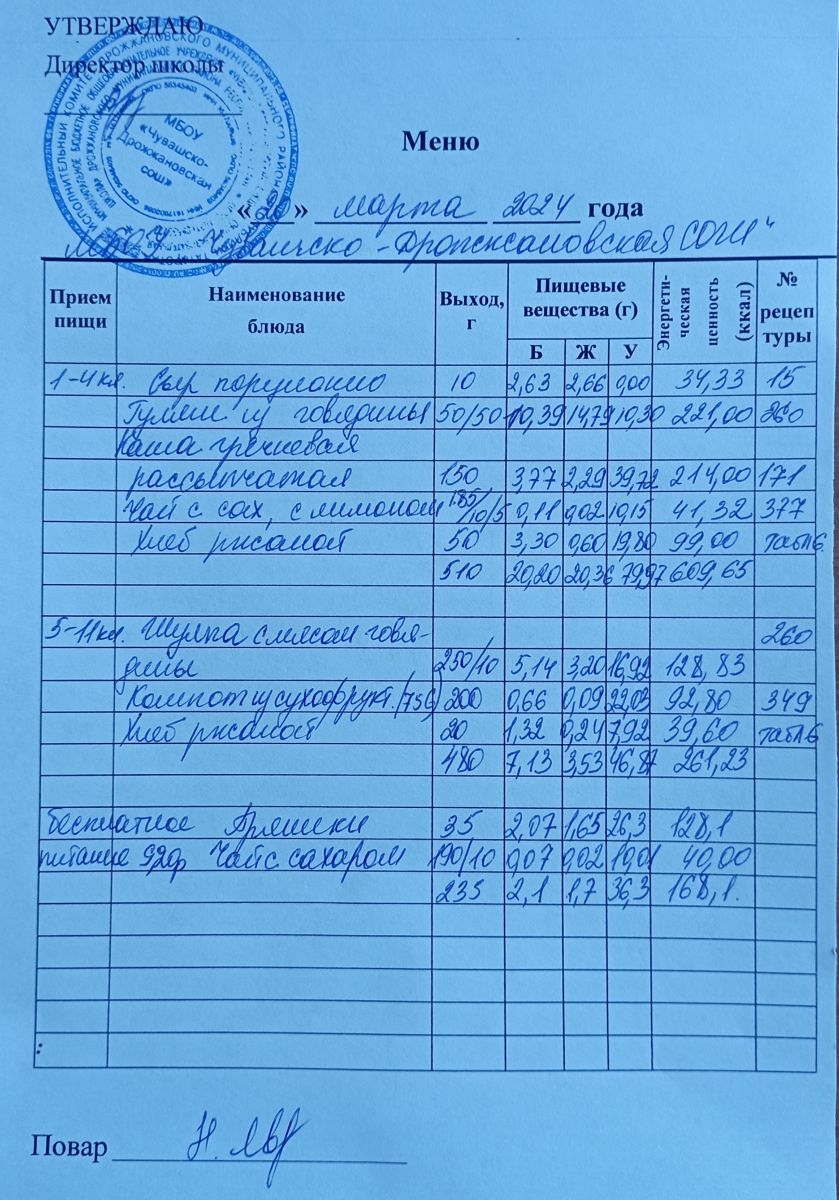 УТВЕРЖДАЮ
Директор школы
МБОУ
«Чувашско-
Дрожжановская
сош»
Меню
« » марта 2024 года
Чувашско-Дрожжановская СОШ"
Прием пищи Наименование блюда Выход, г Пищевые вещества (г) Энергети-ческая ценность (ккал) № рецептуры
Б Ж У
1-4 кл. Сыр порционно 10 2,63 2,66 0,00 34,33 15
Гуляш из говядины 50/50 10,39 14,79 10,30 221,00 260
Каша гречневая
рассыпчатая 150 3,77 2,29 39,72 214,00 171
Чай с сах, с лимоном 185/10/5 0,11 0,02 10,15 41,32 377
Хлеб ржаной 50 3,30 0,60 19,80 99,00 табл6.
510 20,20 20,36 79,97 609,65
5-11 кл. Шулпа с мясом говя- 260
дины 250/10 5,14 3,20 16,92 128,83
Компот из сухофрукт. (75С) 200 0,66 0,09 22,03 92,80 349
Хлеб ржаной 20 1,32 0,24 7,92 39,60 табл6
480 7,13 3,53 46,87 261,23
бесплатное 35 2,07 1,65 26,3 128,1
питание Чай с сахаром 190/10 0,07 0,02 10,01 40,00
235 2,1 1,7 36,3 168,1.
:
Повар